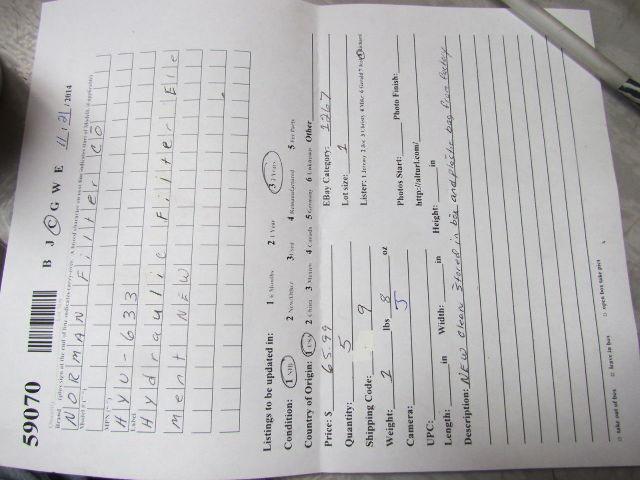 59070 B J C G W E 11/21/2014
Brand
NORMAN Filter CO
HYU-633
Label
Hydraulic Filter Ele
ment NEW
Listings to be updated in: 1 6 Months 2 1 Year 3 2 Years
Condition: 1 NIB 2 New/Other 3 Used 4 Remanufactured 5 For Parts
Country of Origin: 1 USA 2 China 3 Mexico 4 Canada 5 Germany 6 Unknown Other
Price: $ 65.99 EBay Category: 1267
Quantity: 5 Lot size: 1
Shipping Code: 9 Lister:
Weight: 2 lbs 8 oz
Camera: J Photos Start: Photo Finish:
UPC: http://alturl.com/
Length: in Width: in Height: in
Description: NEW Clean Stored in box and plastic bag from factory
□ take out of box □ leave in box □ open box take pics